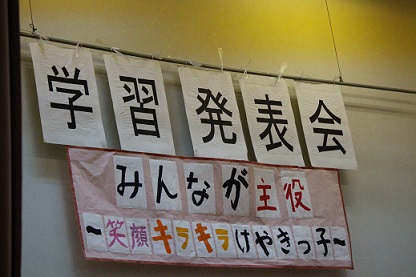 学習発表会
みんなが主役
～笑顔キラキラけやきっ子～